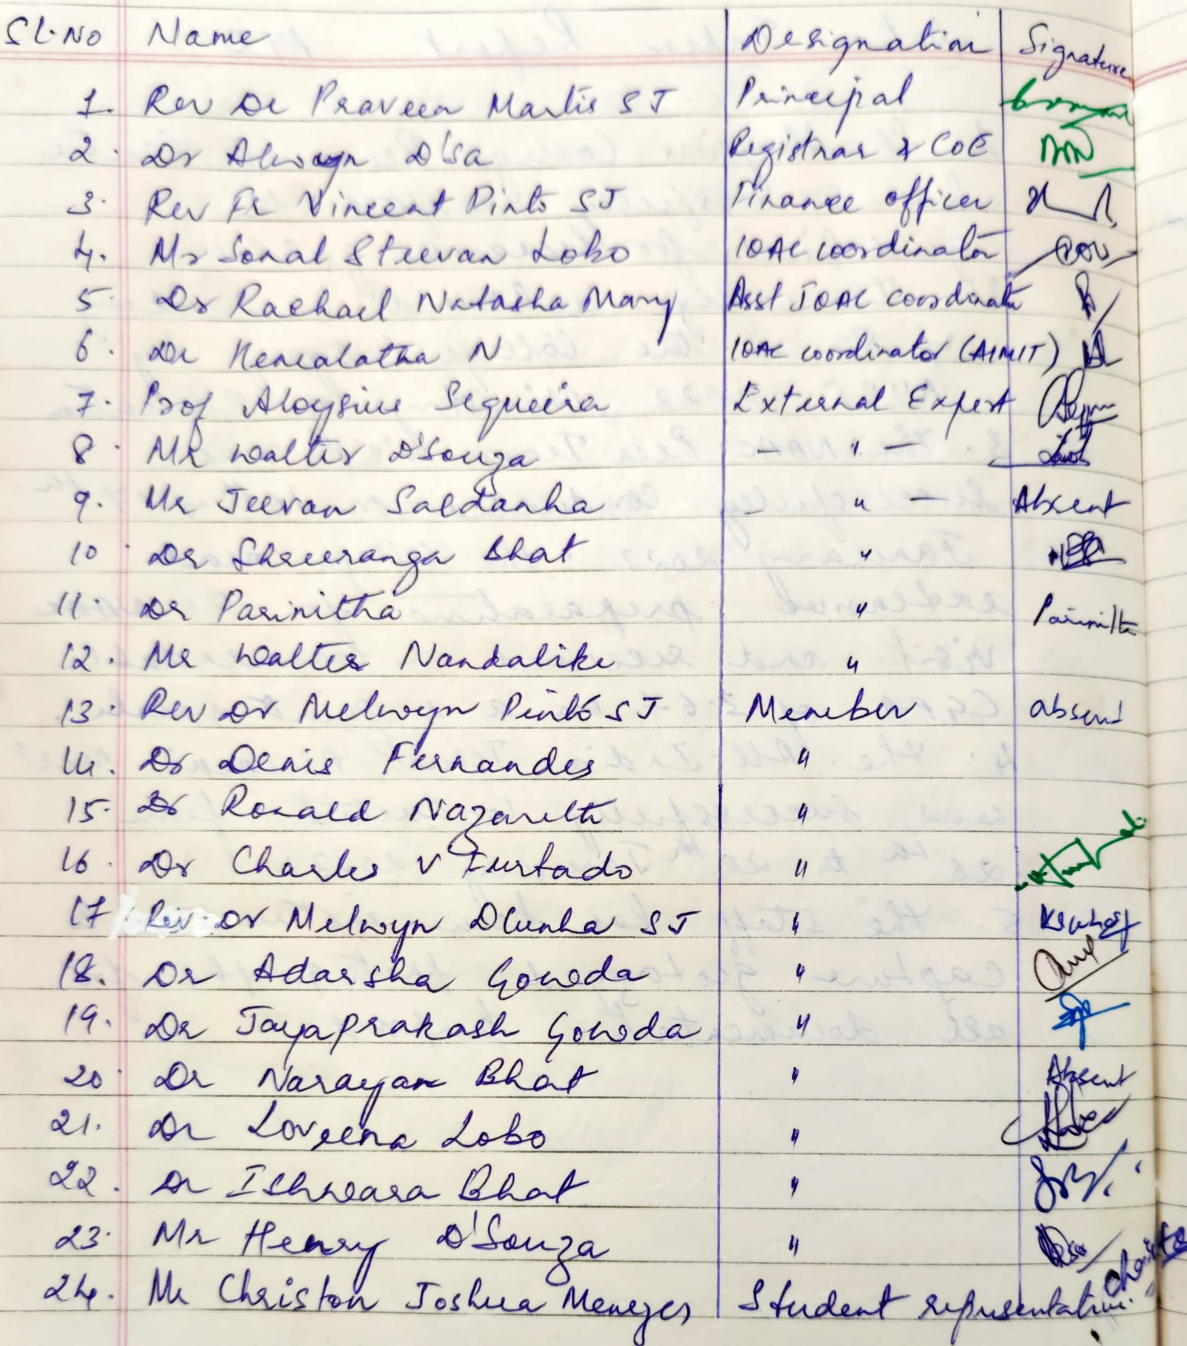 Sl.No Name Designation Signature
1. Rev Dr Praveen Martis SJ Principal
2. Dr Alwyn D'Sa Registrar & CoE
3. Rev Fr Vincent Pinto SJ Finance officer
4. Ms Sonal Steevan Lobo IQAC coordinator
5. Dr Rachael Natasha Mary Asst IQAC coordinator
6. Dr Hemalatha N IQAC coordinator (AIMIT)
7. Prof Aloysius Sequeira External Expert
8. Mr Walter D'Souza — " —
9. Mr Jeevan Saldanha — " — Absent
10. Dr Shreeranga Bhat "
11. Dr Parinitha " Parinitha
12. Mr Walter Nandalike "
13. Rev Dr Melwyn Pinto SJ Member absent
14. Dr Denis Fernandes "
15. Dr Ronald Nazareth "
16. Dr Charles V Furtado "
17 Rev. Dr Melwyn Dcunha SJ "
18. Dr Adarsha Gowda "
19. Dr Jayaprakash Gowda "
20 Dr Narayan Bhat " Absent
21. Dr Loveena Lobo "
22. Dr Ishwara Bhat "
23. Mr Henry D'Souza "
24. Mr Christon Joshua Menezes Student representative.